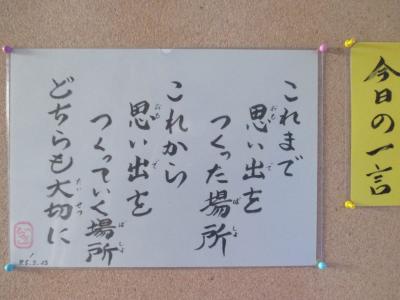 今日の一言
これまで
思い出を
つくった場所
これから
思い出を
つくっていく場所
どちらも大切に